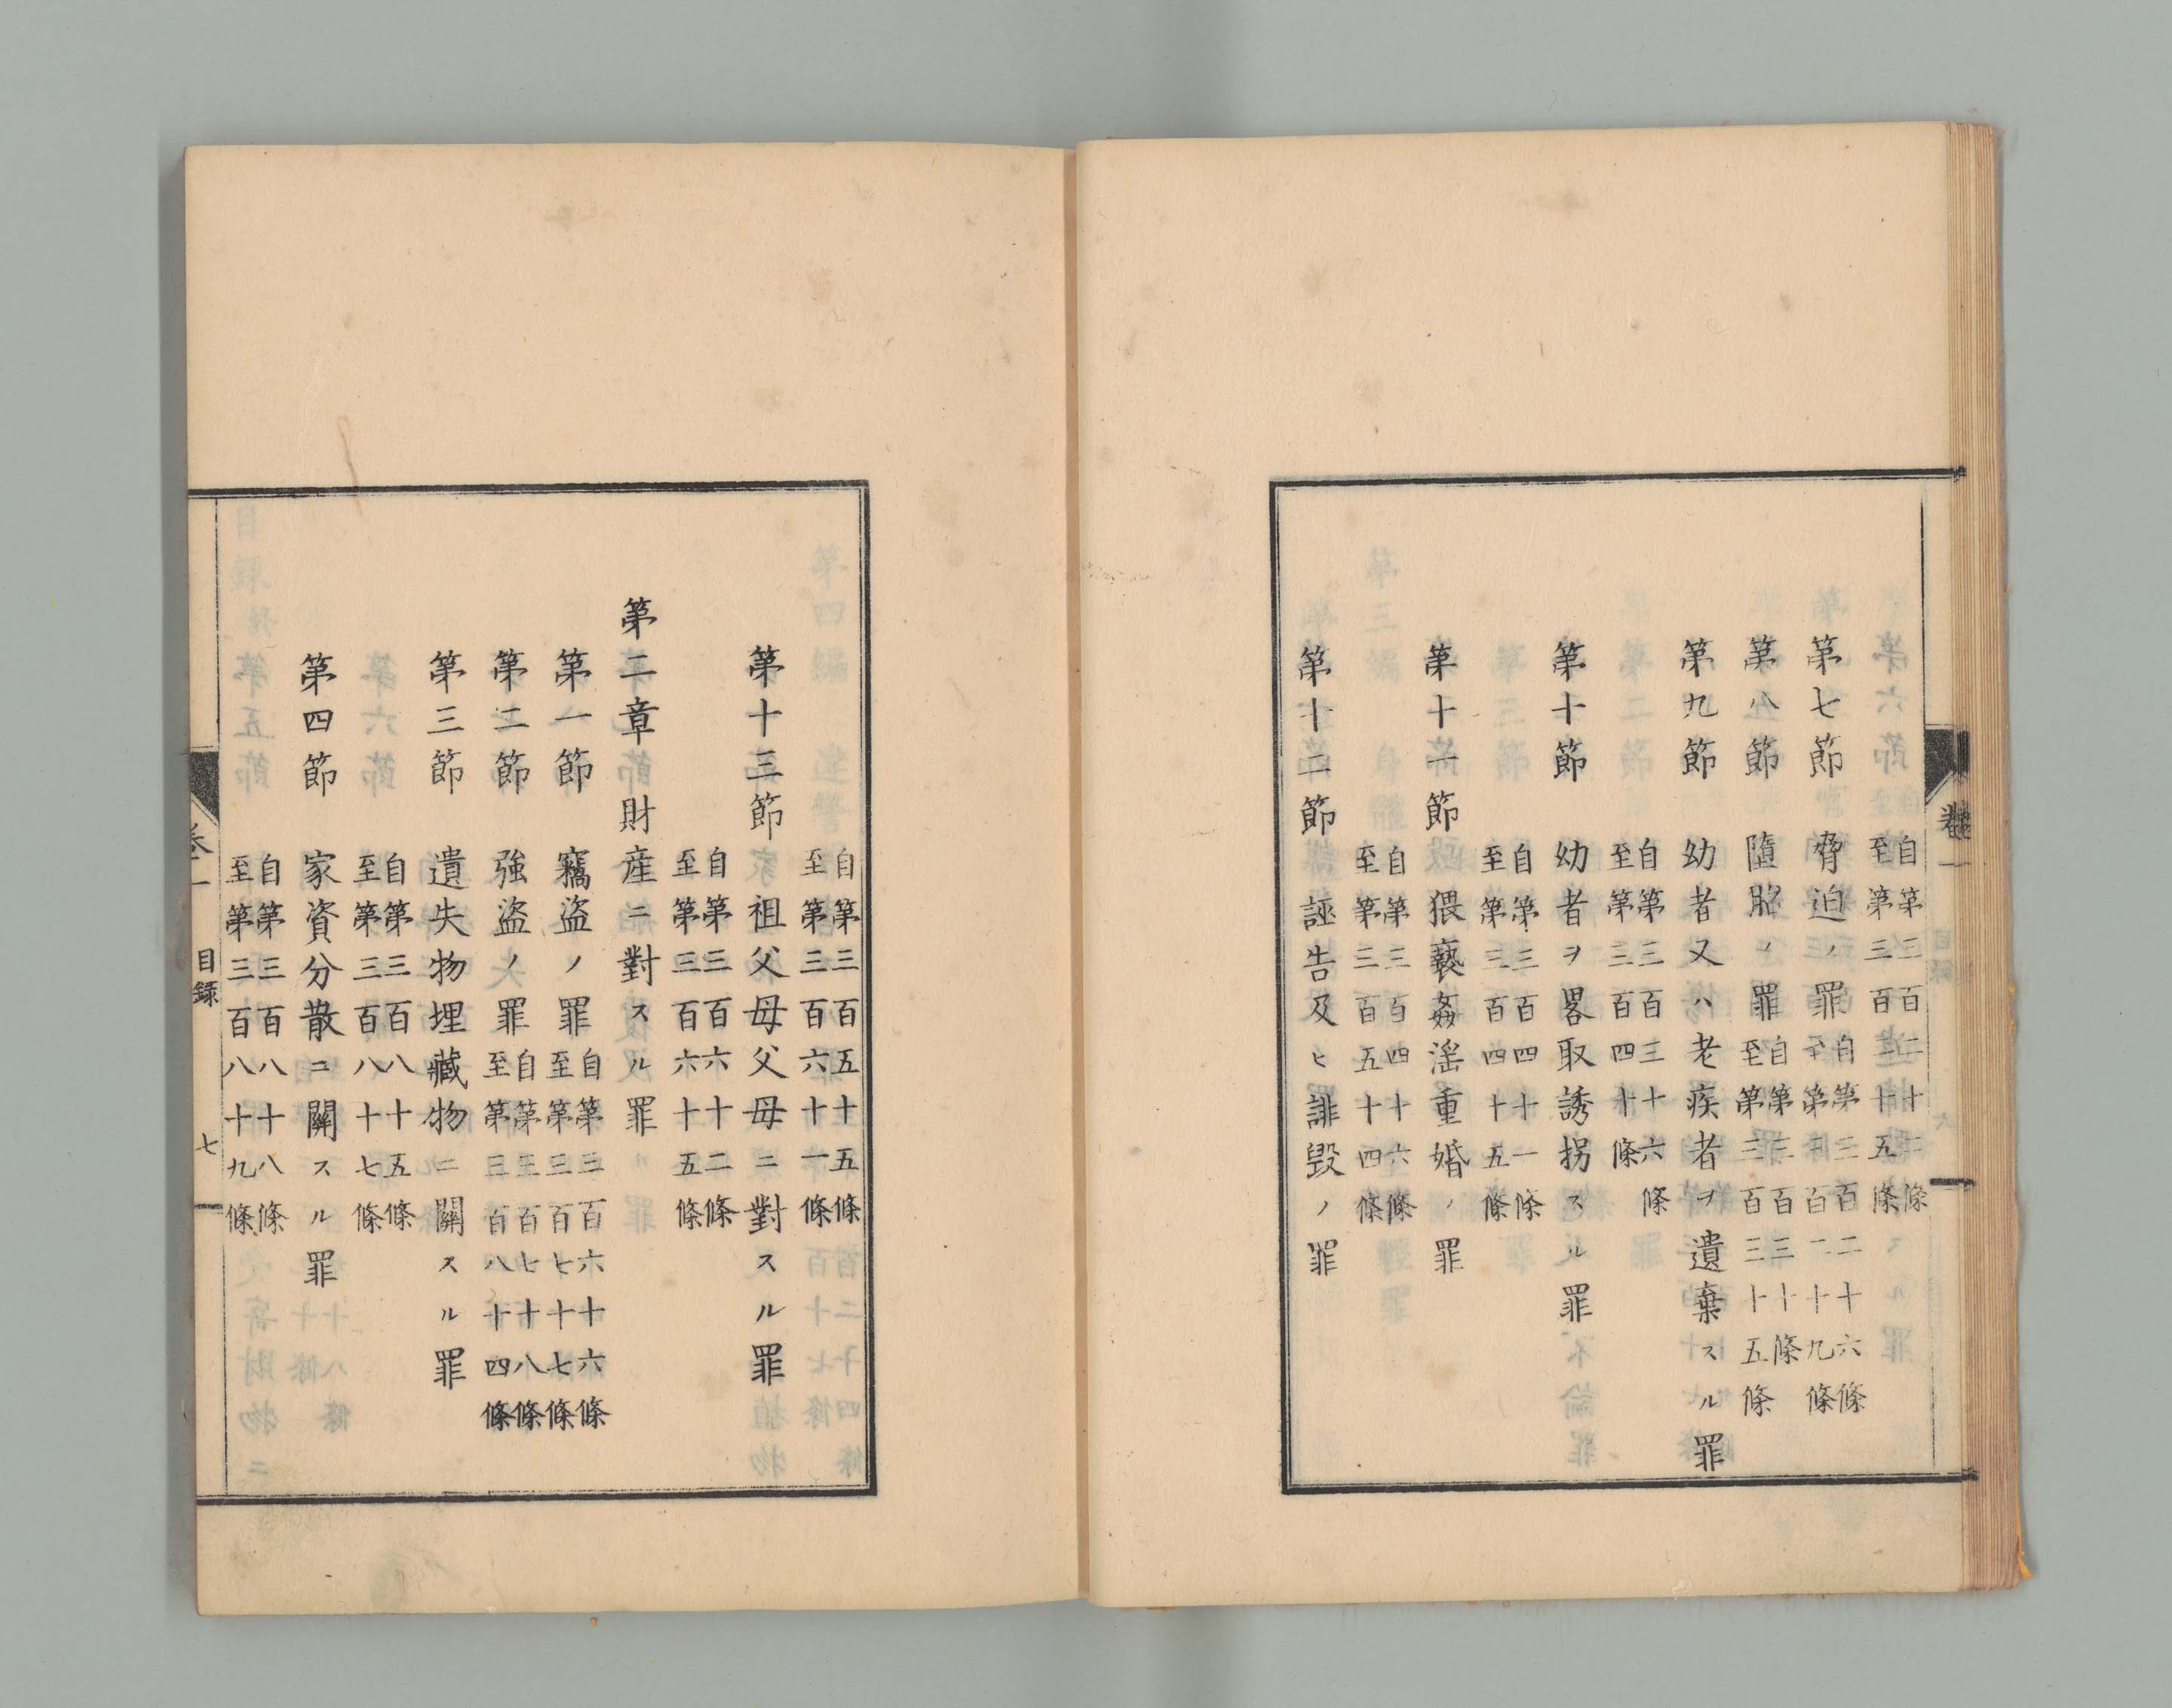 自第三百二十二條
至第三百二十五條
第七節　脅迫ノ罪
自第三百二十六條
至第三百二十九條
第八節　墮胎ノ罪
自第三百三十條
至第三百三十五條
第九節　幼者又ハ老疾者ヲ遺棄スル罪
自第三百三十六條
至第三百四十條
第十節　幼者ヲ畧取誘拐スル罪
自第三百四十一條
至第三百四十五條
第十一節　猥褻姦淫重婚ノ罪
自第三百四十六條
至第三百五十四條
第十二節　誣告及ヒ誹毀ノ罪
自第三百五十五條
至第三百六十一條
第十三節　祖父母父母ニ對スル罪
自第三百六十二條
至第三百六十五條
第二章　財産ニ對スル罪
第一節　竊盜ノ罪
自第三百六十六條
至第三百七十七條
第二節　強盜ノ罪
自第三百七十八條
至第三百八十四條
第三節　遺失物埋藏物ニ關スル罪
自第三百八十五條
至第三百八十七條
第四節　家資分散ニ關スル罪
自第三百八十八條
至第三百八十九條
卷一　目録　七